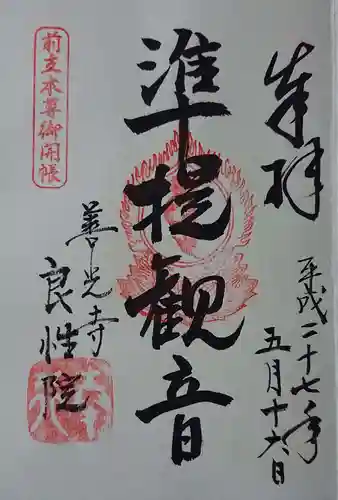 奉拝
平成二十七年
五月十六日
準提観音
善光寺
良性院
前立本尊御開帳